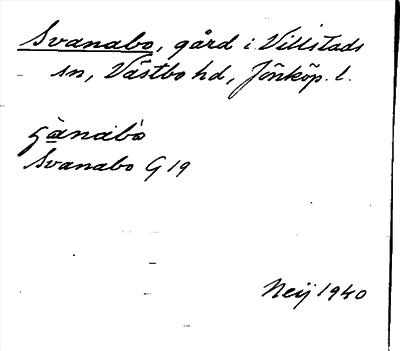 Svanabo, gård i Villstads
sn, Västbo hd, Jönköp. l.
Svanabo G 19
Neij 1940